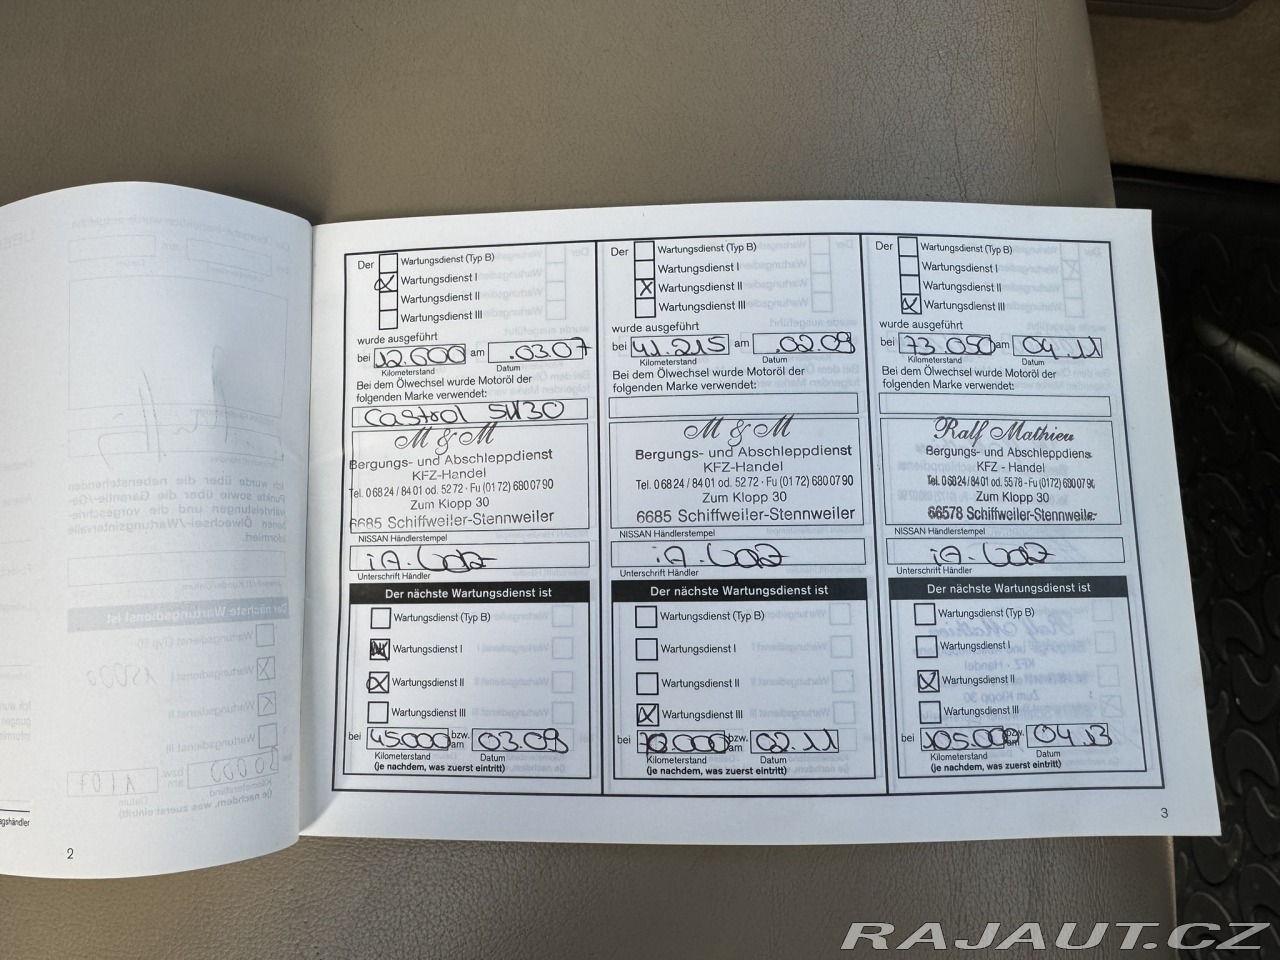 Der
Wartungsdienst (Typ B)
Wartungsdienst I
Wartungsdienst II
Wartungsdienst III
wurde ausgeführt
bei 12.600 am .03.07
Kilometerstand Datum
Bei dem Ölwechsel wurde Motoröl der
folgenden Marke verwendet:
Castrol 5W30
M & M
Bergungs- und Abschleppdienst
KFZ-Handel
Tel. 0 68 24 / 84 01 od. 52 72 · Fu (01 72) 680 07 90
Zum Klopp 30
6685 Schiffweiler-Stennweiler
NISSAN Händlerstempel
Unterschrift Händler
Der nächste Wartungsdienst ist
Wartungsdienst (Typ B)
Wartungsdienst I
Wartungsdienst II
Wartungsdienst III
bei 45.000 bzw. am 03.09
Kilometerstand Datum
(je nachdem, was zuerst eintritt)
Der
Wartungsdienst (Typ B)
Wartungsdienst I
Wartungsdienst II
Wartungsdienst III
wurde ausgeführt
bei 41.215 am .02.09
Kilometerstand Datum
Bei dem Ölwechsel wurde Motoröl der
folgenden Marke verwendet:
M & M
Bergungs- und Abschleppdienst
KFZ-Handel
Tel. 0 68 24 / 84 01 od. 52 72 · Fu (01 72) 680 07 90
Zum Klopp 30
6685 Schiffweiler-Stennweiler
NISSAN Händlerstempel
Unterschrift Händler
Der nächste Wartungsdienst ist
Wartungsdienst (Typ B)
Wartungsdienst I
Wartungsdienst II
Wartungsdienst III
bei 70.000 bzw. am 02.11
Kilometerstand Datum
(je nachdem, was zuerst eintritt)
Der
Wartungsdienst (Typ B)
Wartungsdienst I
Wartungsdienst II
Wartungsdienst III
wurde ausgeführt
bei 73.050 am 04.11
Kilometerstand Datum
Bei dem Ölwechsel wurde Motoröl der
folgenden Marke verwendet:
Ralf Mathieu
Bergungs- und Abschleppdiens
KFZ - Handel
Tel. 0 68 24 / 84 01 od. 55 78 · Fu (01 72) 680 07 90
Zum Klopp 30
66578 Schiffweiler-Stennweiler
NISSAN Händlerstempel
Unterschrift Händler
Der nächste Wartungsdienst ist
Wartungsdienst (Typ B)
Wartungsdienst I
Wartungsdienst II
Wartungsdienst III
bei 105.000 bzw. am 04.13
Kilometerstand Datum
(je nachdem, was zuerst eintritt)
2
3
RAJAUT.CZ